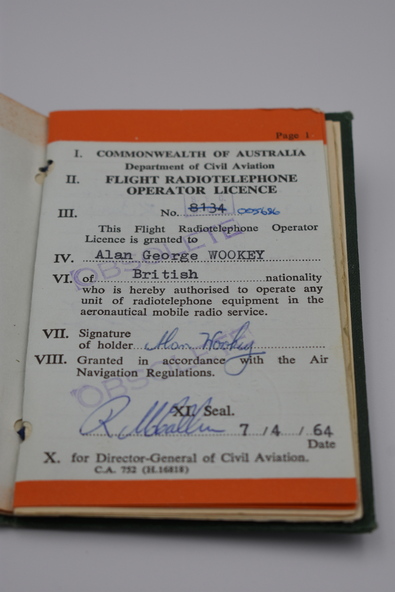 Page 1
I. COMMONWEALTH OF AUSTRALIA
Department of Civil Aviation
II. FLIGHT RADIOTELEPHONE
OPERATOR LICENCE
III. No. 8134 005686
This Flight Radiotelephone Operator
Licence is granted to
IV. Alan George WOOKEY
VI. of British nationality
who is hereby authorised to operate any
unit of radiotelephone equipment in the
aeronautical mobile radio service.
OBSOLETE
VII. Signature
of holder Alan Wookey
VIII. Granted in accordance with the Air
Navigation Regulations.
OBSOLETE
XI. Seal.
7 / 4 / 64
Date
X. for Director-General of Civil Aviation.
C.A. 752 (H.16818)